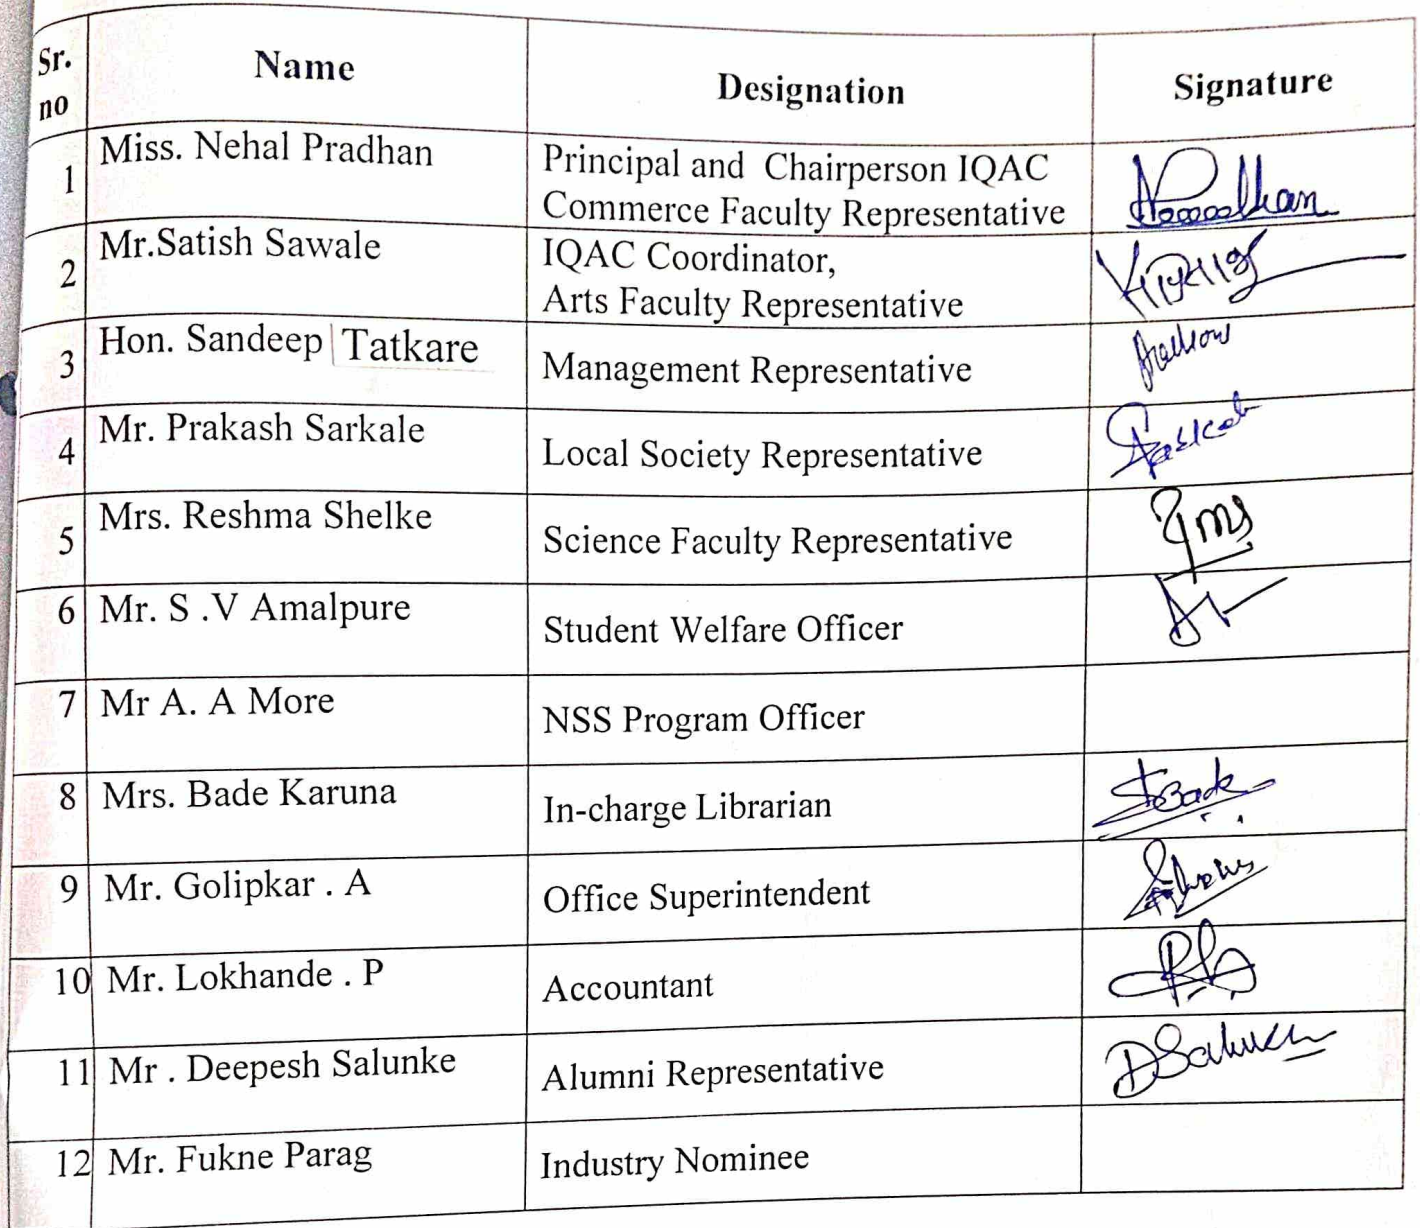 Sr. no Name Designation Signature
1 Miss. Nehal Pradhan Principal and Chairperson IQAC
Commerce Faculty Representative
2 Mr.Satish Sawale IQAC Coordinator,
Arts Faculty Representative
3 Hon. Sandeep Tatkare Management Representative
4 Mr. Prakash Sarkale Local Society Representative
5 Mrs. Reshma Shelke Science Faculty Representative
6 Mr. S .V Amalpure Student Welfare Officer
7 Mr A. A More NSS Program Officer
8 Mrs. Bade Karuna In-charge Librarian
9 Mr. Golipkar . A Office Superintendent
10 Mr. Lokhande . P Accountant
11 Mr . Deepesh Salunke Alumni Representative
12 Mr. Fukne Parag Industry Nominee